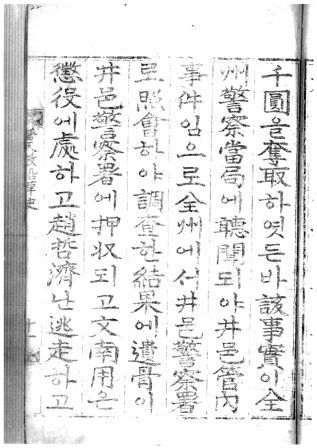 千圓을奪取하엿든바該事實이全
州警察當局에聽聞되야井邑管內
事件임으로全州에서井邑警察署
로照會하야調查한結果에遺骨이
井邑警察署에押收되고文南用은
懲役에處하고趙哲濟난逃走하고